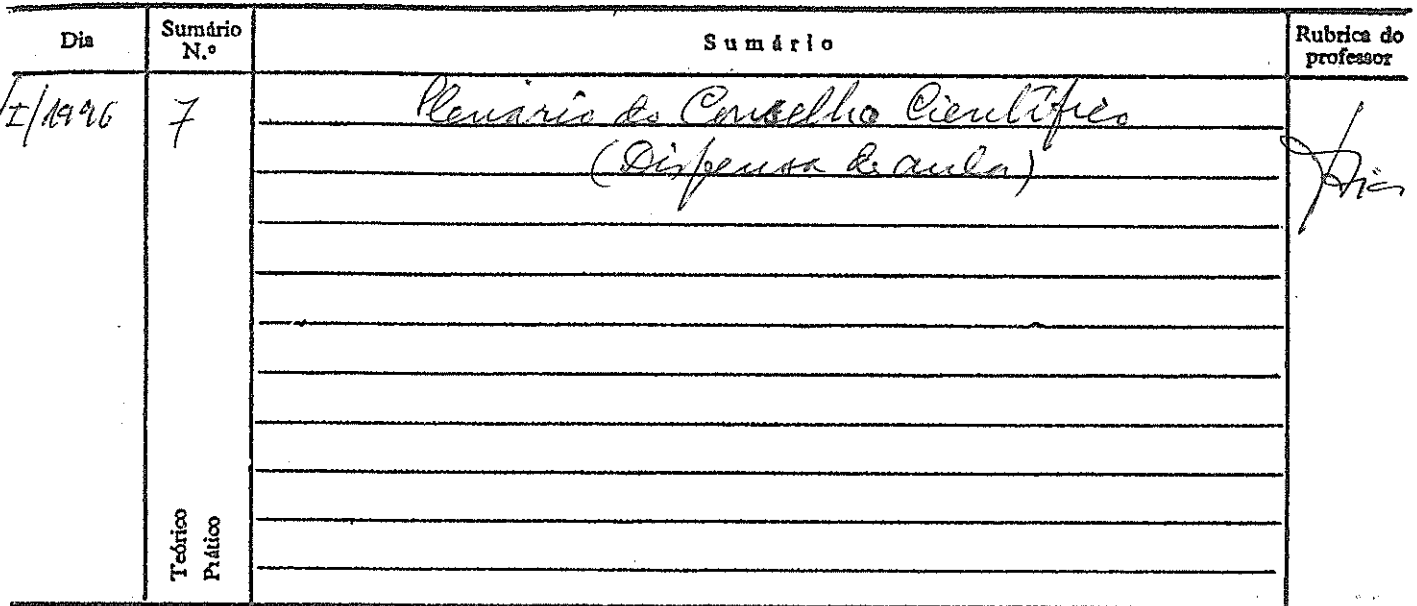 Dia
Sumário N.º
Sumário
Rubrica do professor
I/1996
7
Plenário do Conselho Científico
(Dispensa de aula)
Teórico
Prático